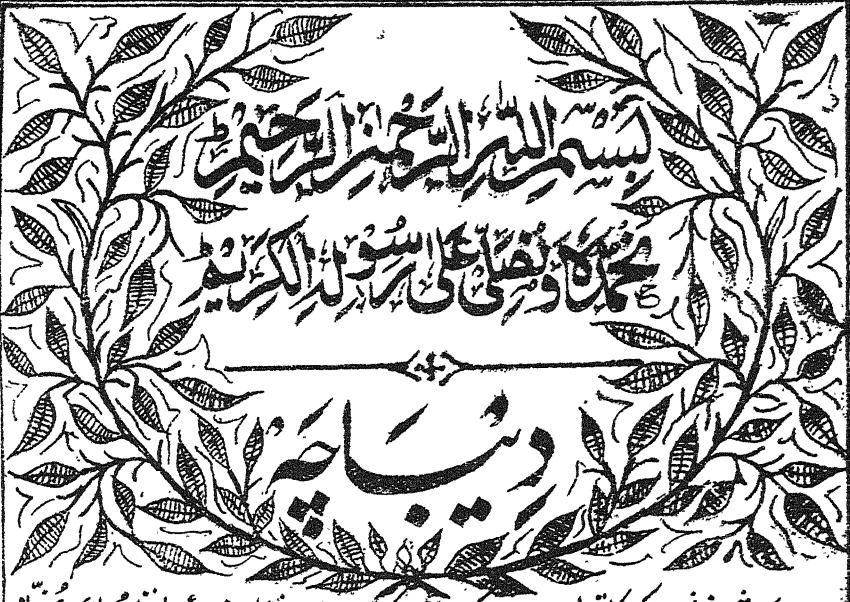 بِسْمِ اللهِ الرَّحْمٰنِ الرَّحِيْمِ
نَحْمَدُهٗ وَنُصَلِّیْ عَلٰی رَسُوْلِهِ الْكَرِيْمِ
دِیْبَاچَہ